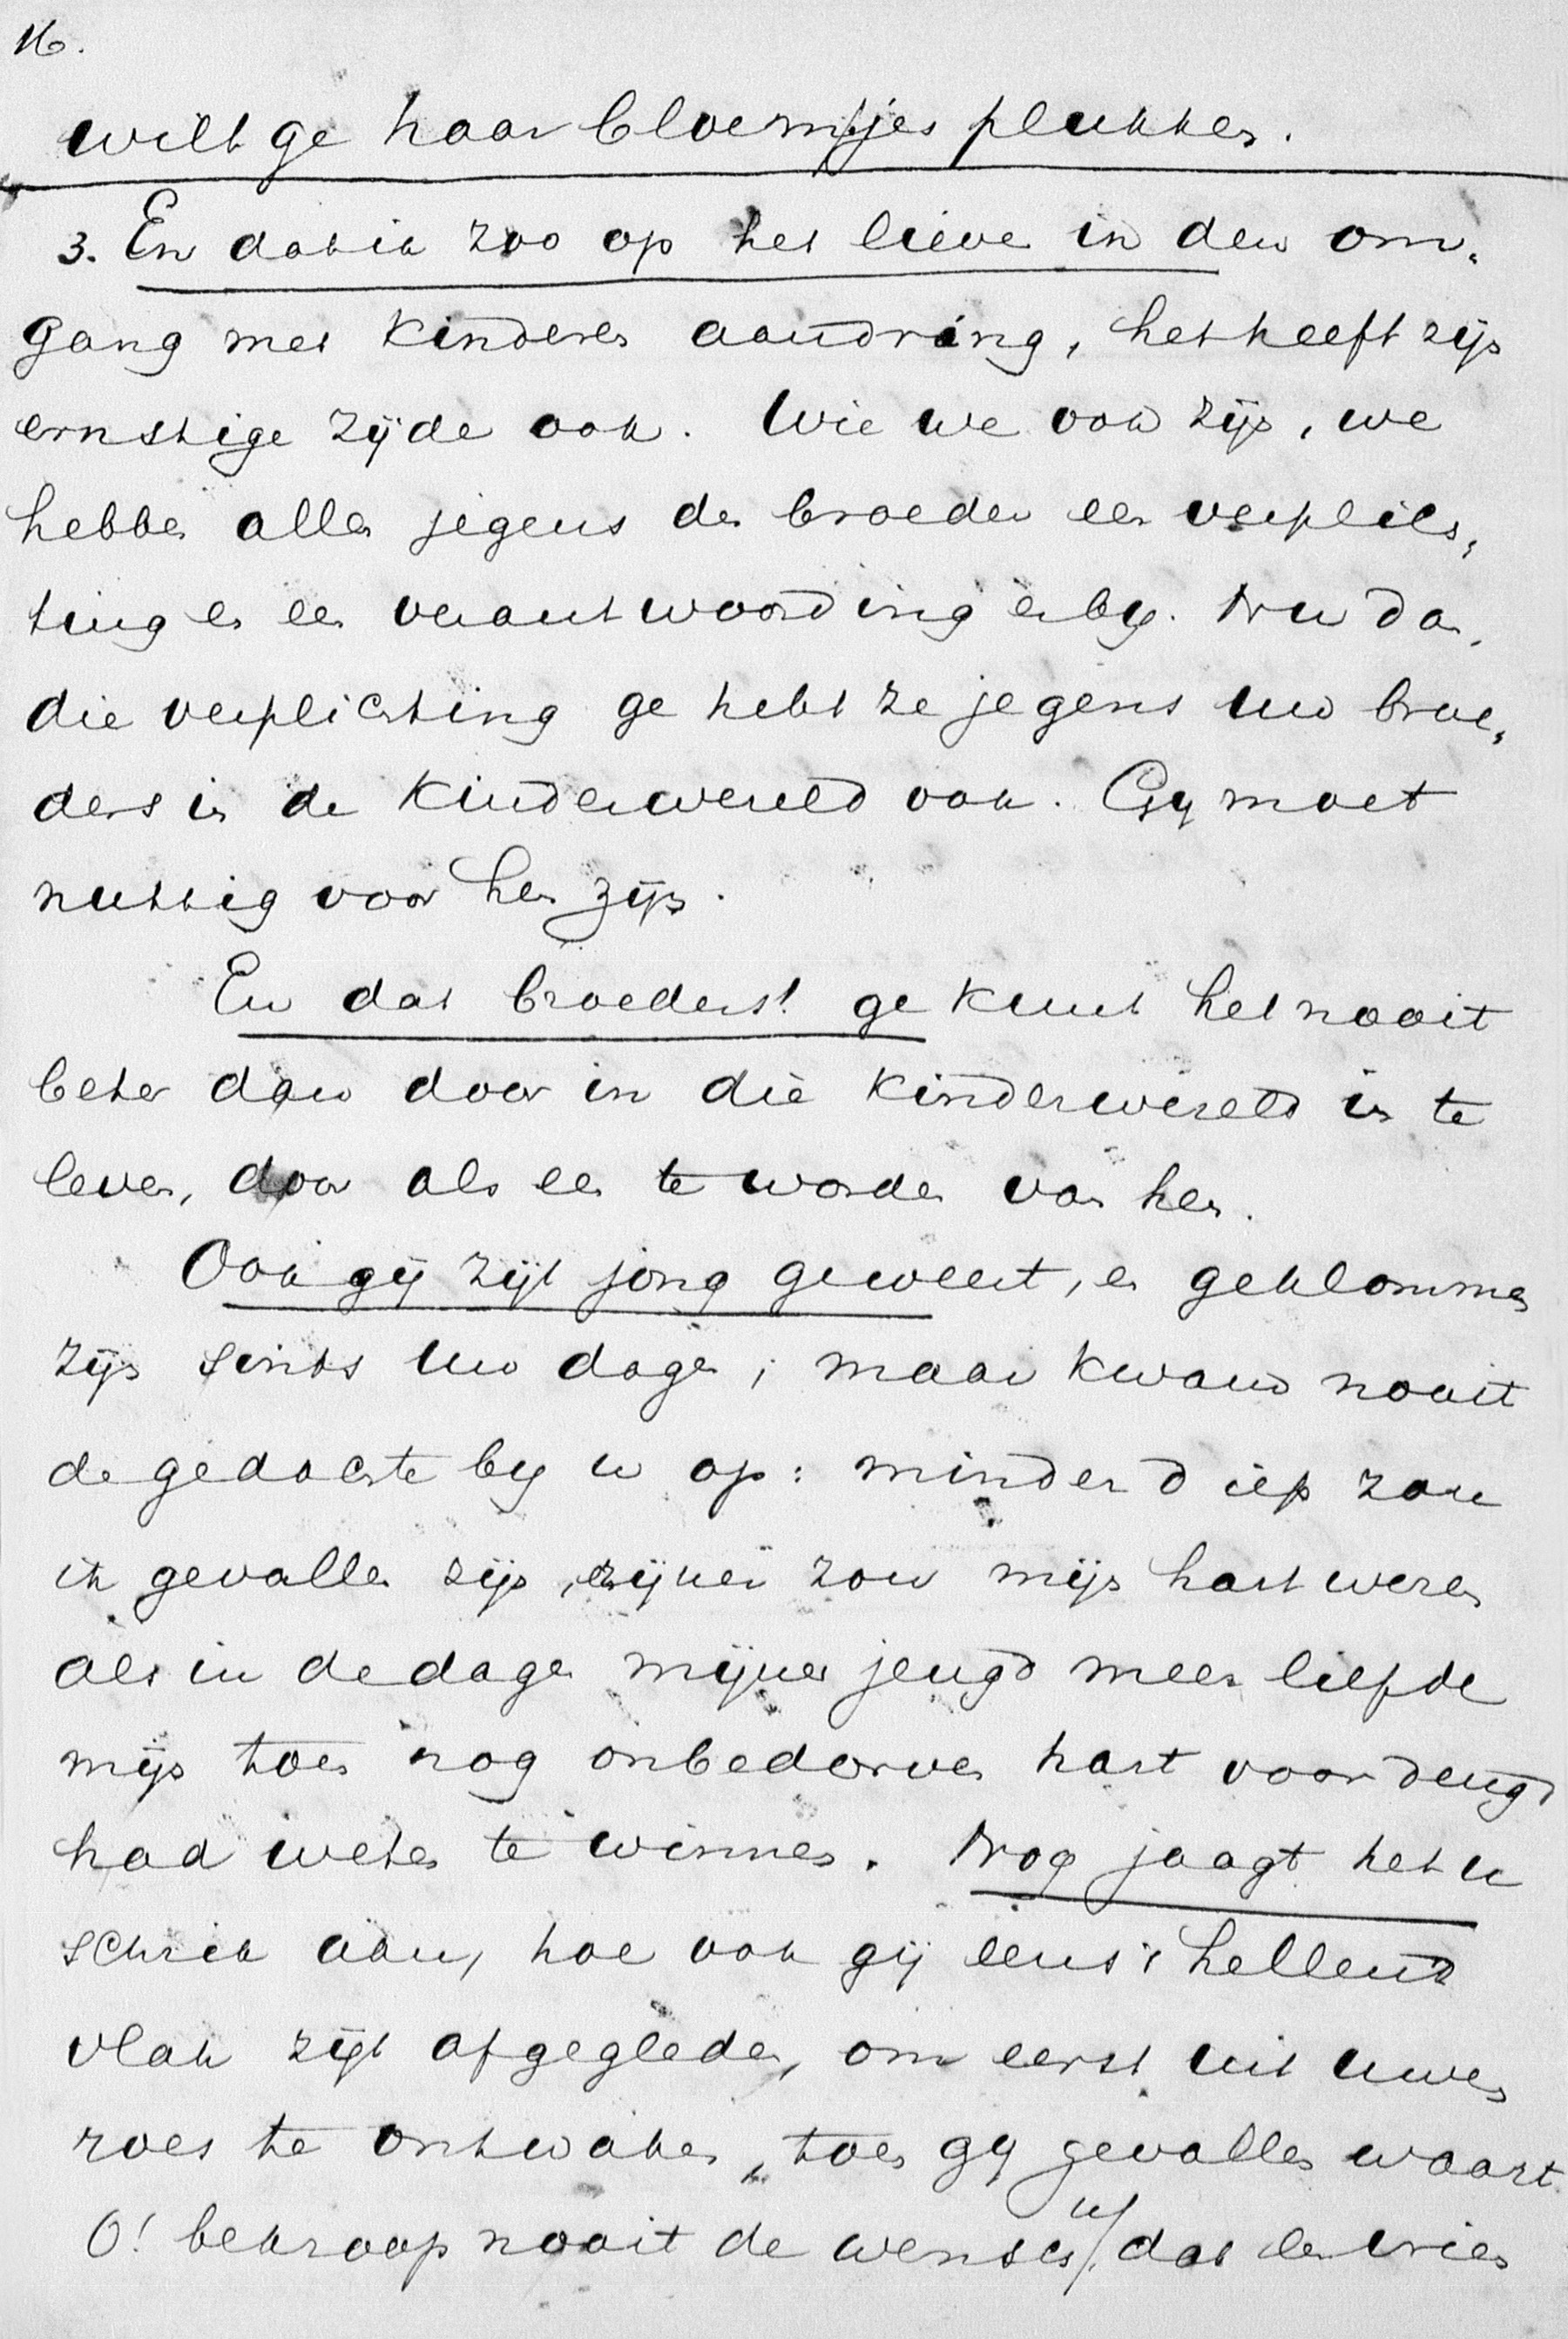 16.
wilt ge haar bloemtjes plukken.
3. En dat ik zoo op het lieve in den om„
gang met kinderen aandring, het heeft zijn
ernstige zijde ook. Wie we ook zijn, we
hebben allen jegens den broeder een verplich„
ting en een verantwoording erby. Nu dan,
die verplichting ge hebt ze jegens uw broe„
ders in de kinderwereld ook. Gy moet
nuttig voor hen zijn.
En dat broeders! ge kunt het nooit
beter dan door in die kinderwereld in te
leven, door als een te worden van hen.
Ook gij zijt jong geweest, en geklommen
zijn sints uw dagen; maar kwam nooit
de gedachte by u op: minder diep zou
ik gevallen zijn, reijner zou mijn hart weren
als in de dagen mijner jeugd meer liefde
mijn toen nog onbedorven hart voor deugd
had weten te winnen. Nog jaagt het u
schrik aan, hoe ook gij eens 't hellend
vlak zijt afgegleden, om eerst uit uwen
roes te ontwaken, toen gy gevallen waart.
O! bekroop nooit de wensch u, dat een vrien